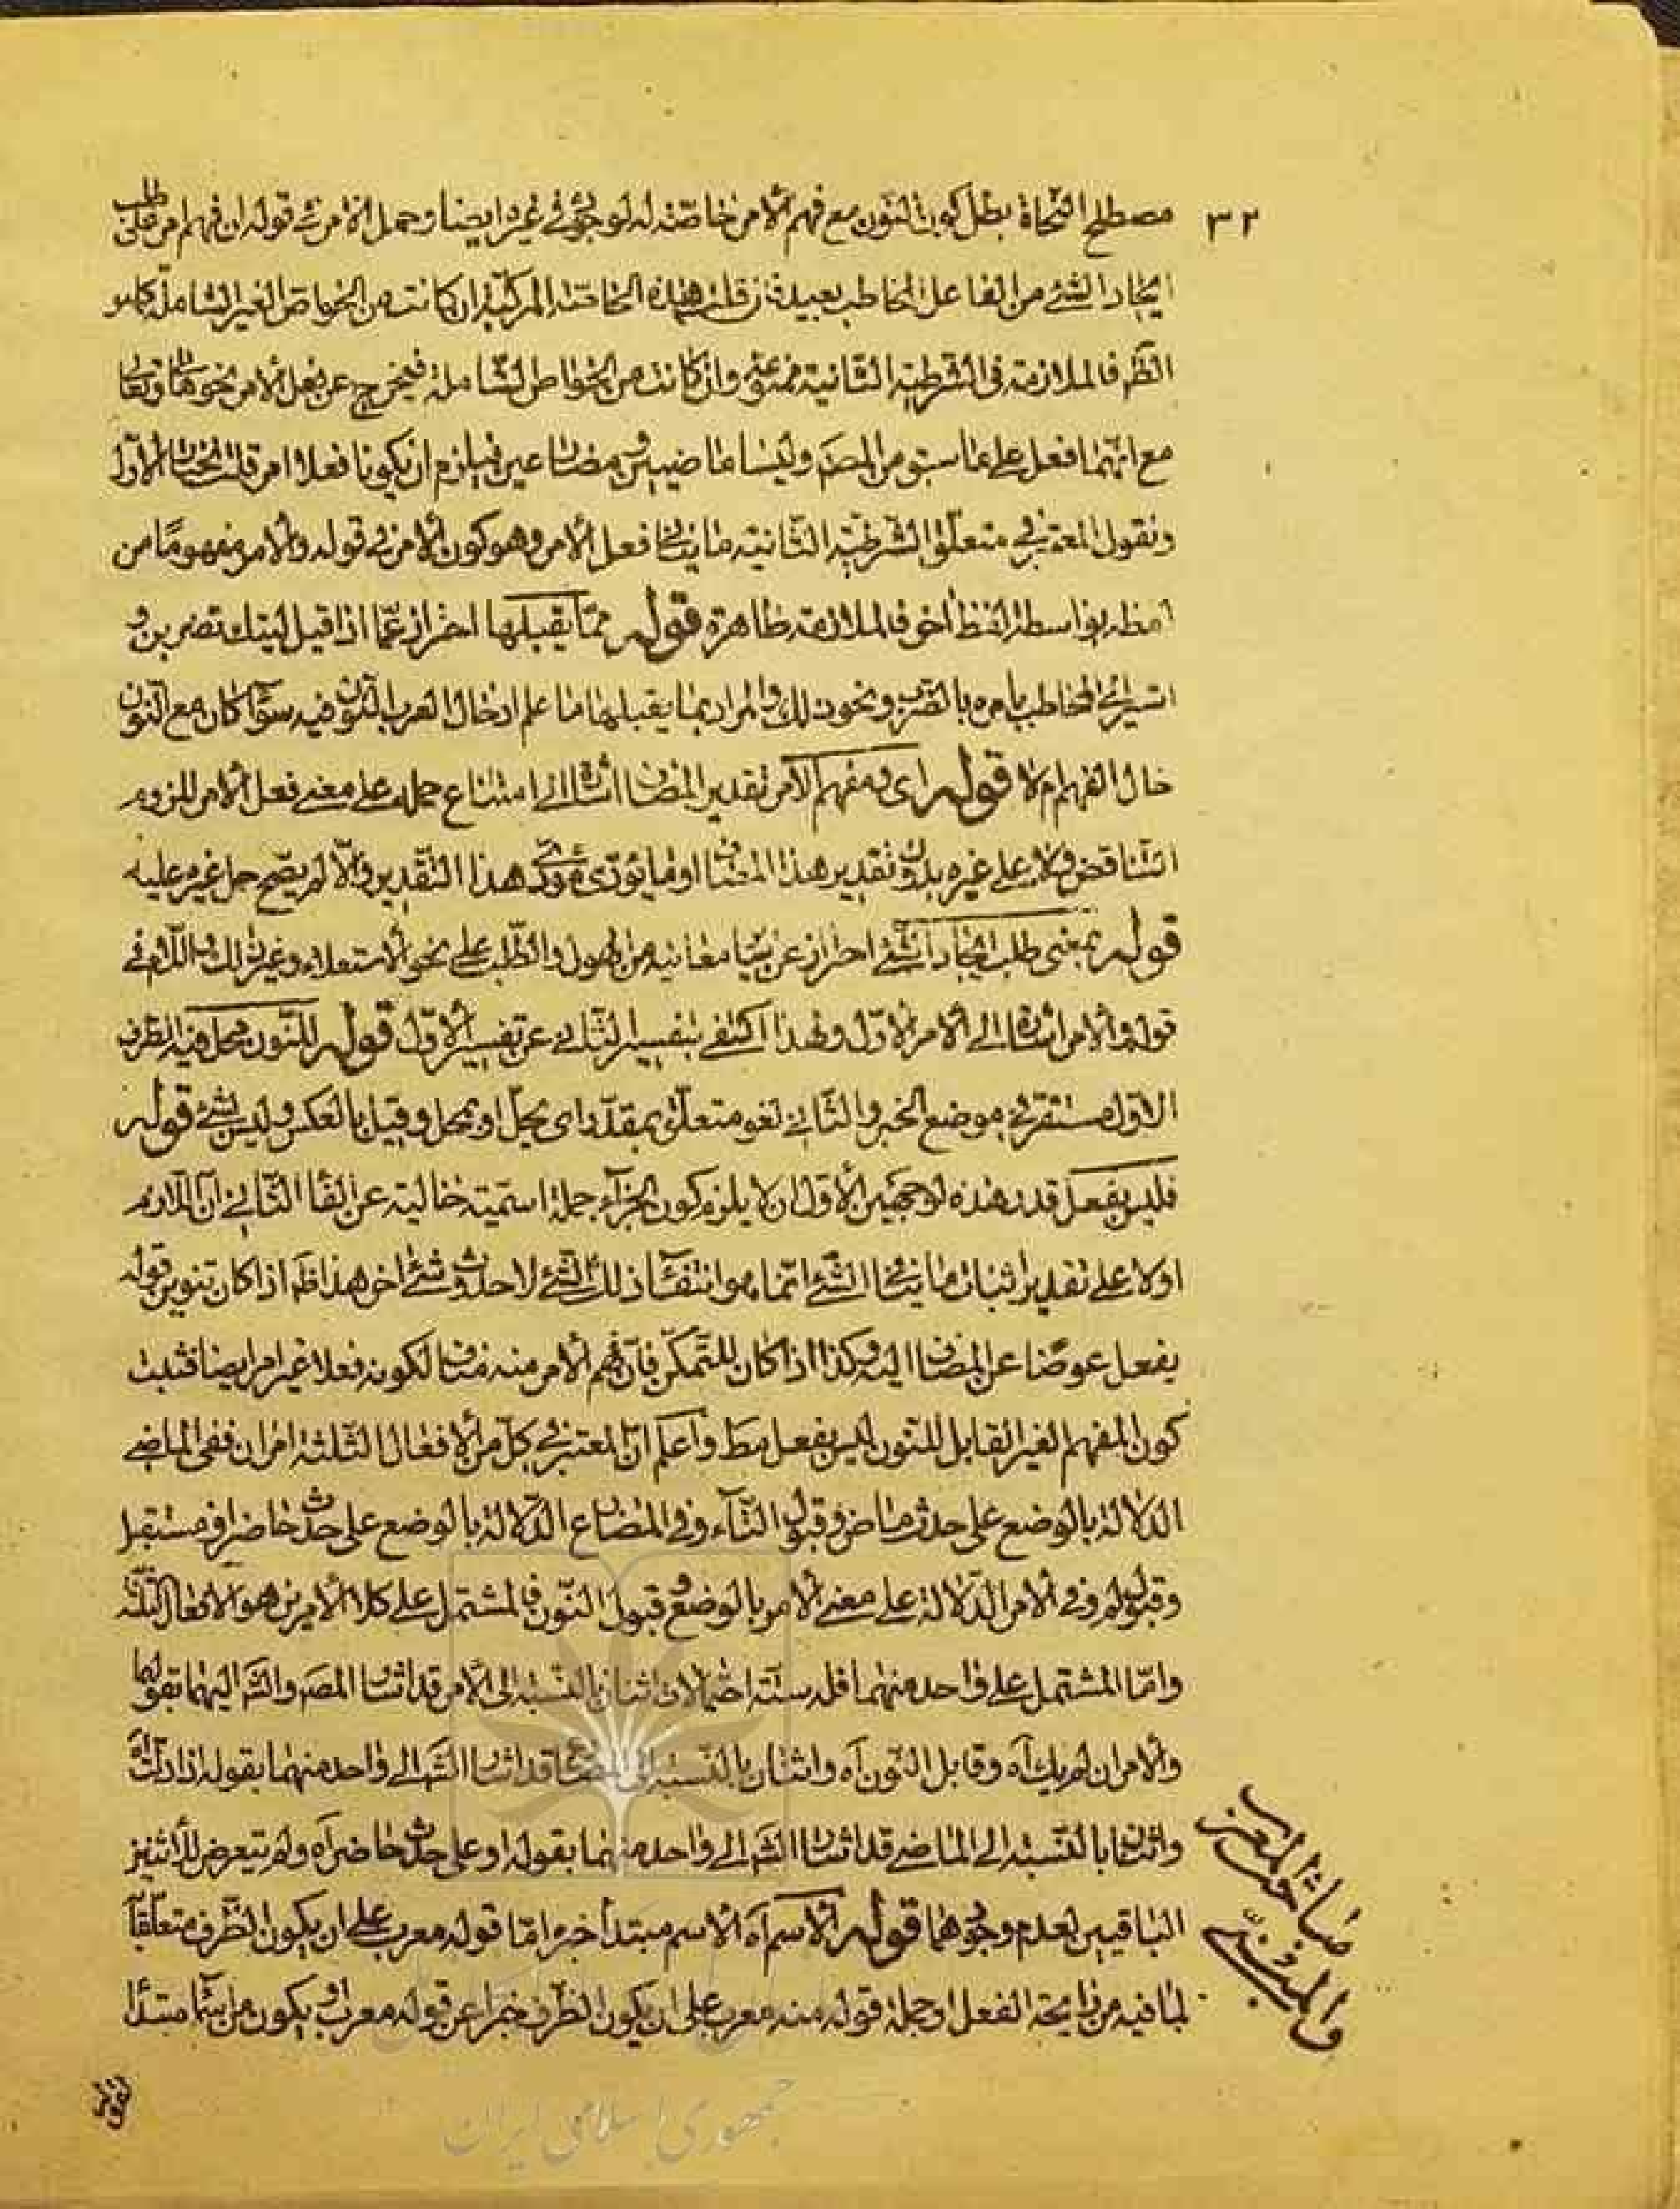 ٣٢
مصطلح النحاة بطل كون النون مع فهم الامر خاصة له لوجوده في غيره ايضا وحمل الامر في قوله ان فهم امر على طلب
ايجاد الشئ من الفاعل المخاطب بعيد قلت هذه الخاصة المركبة ان كانت من الخواص الغير الشاملة كما هو
الظم فالملازمة في الشرطية الثانية ممنوعة وان كانت من الخواص الشاملة فيخرج عن فعل الامر نحو هات وتعال
مع انهما فعل على ما سبق من المصَ وليسا ماضيين ومضارعين فيلزم ان يكونا فعلا امر قلت نختار الاول
ونقول المعتبر في متعلق الشرطية الثانية ما ينافي فعل الامر وهو كون الامر في قوله والامر مفهوما من
لفظه بواسطة لفظ اخر فالملازمة ظاهرة قوله مما يقبلها احتراز عما اذا قيل ليتك تضربن و
اشير الى المخاطب بامره بالضرب ونحو ذلك والمراد بما يقبلها ما علم ادخال العرب النون فيه سوآء كان مع النون
حال الفهم ام لا قوله اى ومفهم الامر تقدير المضاف اشارة الى امتناع حمله على معنى فعل الامر للزوم
التناقض ولا على غيره بدون تقدير هذا المضاف او ما يؤدى مؤدى هذا التقدير والا لم يصح حمل غيره عليه
قوله بمعنى طلب ايجاد الشئ احتراز عن بقية معانيه من الهول والطلب على نحو الاستعلاء وغير ذلك واللام في
قوله والامر اشارة الى الامر الاول ولهذا اكتفى بتفسير الثاني عن تفسير الاول قوله للنون محل فيه الظرف
الاول مستقر في موضع الخبر والثاني لغو متعلق بمقدر اى يحل او بمحل وقيل بالعكس وليس بشئ قوله
فليس بفعل قدر هذه لوجهين الاول ان لا يلزم كون الجزآء جملة اسمية خالية عن الفا الثاني ان اللازم
اولا على تقدير اثبات ما ينافي الشئ انما هو انتفآء ذلك الشئ لا حدوث شئ اخر هذا ظم اذا كان تنوين قوله
بفعل عوضا عن المضاف اليه وكذا اذا كان للتمكن فان فهم الامر منه مناف لكونه فعلا غير امر ايضا فثبت
كون المفهم الغير القابل للنون ليس بفعل مط واعلم ان المعتبر في كل من الافعال الثلثة امران ففي الماضي
الدلالة بالوضع على حدث ماض وقبول التآء وفي المضارع الدلالة بالوضع على حدث حاضر او مستقبل
وقبول لم وفي الامر الدلالة على معنى الامر بالوضع وقبول النون فالمشتمل على كلا الامرين هو الافعال الثلثة
واما المشتمل على واحد منهما فله ستة احتمالات اثنان بالنسبة الى الامر قد اشار المصَ والشَ اليهما بقولهما
والامر ان لم يك آه وقابل النون آه واثنان بالنسبة الى المضارع قد اشار الشم الى واحد منهما بقوله اذا دلت آه
واثنان بالنسبة الى الماضي قد اشار الشم الى واحد منهما بقوله او على حدث حاضر آه ولم يتعرض للاثنين
الباقيين لعدم وجودهما قوله الاسم آه الاسم مبتدأ خبره اما قوله معرب على ان يكون الظرف متعلقا
لما فيه من رايحة الفعل او جملة قوله منه معرب على ان يكون الظرف خبرا عن قوله معرب ويكون من بيانا مبتدأ
والمبني